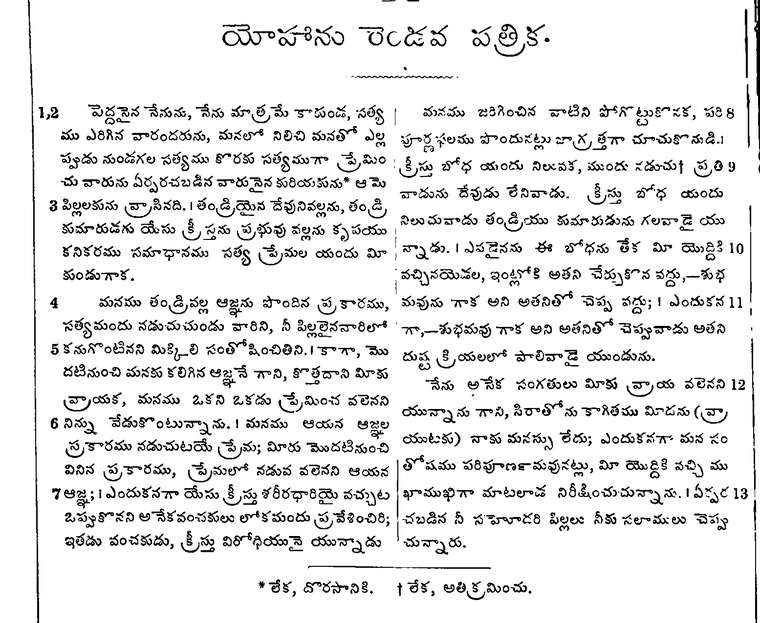 యోహాను రెండవ పత్రిక.
1,2 పెద్దనైన నేనును, నేను మాత్రమే కాకుండ, సత్య
ము ఎరిగిన వారందరును, మనలో నిలిచి మనతో ఎల్ల
ప్పుడు నుండగల సత్యము కొరకు సత్యముగా ప్రేమిం
చు వారును ఏర్పరచబడిన వారునైన కురియకును* ఆ మె
3 పిల్లలకును వ్రాసినది. । తండ్రియైన దేవునివల్లను, తండ్రి
కుమారుడగు యేసు క్రీస్తను ప్రభువు వల్లను కృపయు
కనికరము సమాధానము సత్య ప్రేమల యందు మీ
కుండుగాక.
4 మనము తండ్రివల్ల ఆజ్ఞను పొందిన ప్రకారము,
సత్యమందు నడుచుచుండు వారిని, నీ పిల్లలైనవారిలో
5 కనుగొంటినని మిక్కిలి సంతోషించితిని. । కాగా, మొ
దటినుంచి మనకు కలిగిన ఆజ్ఞనే గాని, కొత్తదాని మీకు
వ్రాయక, మనము ఒకని ఒకడు ప్రేమించ వలెనని
6 నిన్ను వేడుకొంటున్నాను. । మనము ఆయన ఆజ్ఞల
ప్రకారము నడుచుటయే ప్రేమ; మీరు మొదటినుంచి
వినిన ప్రకారము, ప్రేమలో నడువ వలెనని ఆయన
7 ఆజ్ఞ; । ఎందుకనగా యేసు క్రీస్తు శరీరధారియై వచ్చుట
ఒప్పుకొనని అనేకవంచకులు లోకమందు ప్రవేశించిరి;
ఇతడు వంచకుడు, క్రీస్తు విరోధియునై యున్నాడు
మనము జరిగించిన వాటిని పోగొట్టుకొనక, పరి 8
పూర్ణఫలము పొందునట్లు జాగ్రత్తగా చూచుకొనుడి. ।
క్రీస్తు బోధ యందు నిలువక, ముందు నడుచు† ప్రతి 9
వాడును దేవుడు లేనివాడు. క్రీస్తు బోధ యందు
నిలుచువాడు తండ్రియు కుమారుడును గలవాడై యు
న్నాడు. । ఎవడైనను ఈ బోధను తేక మీ యొద్దికి 10
వచ్చినయెడల, ఇంట్లోకి అతని చేర్చుకొన వద్దు,—శుభ
మవును గాక అని అతనితో చెప్ప వద్దు; । ఎందుకన 11
గా,—శుభమవు గాక అని అతనితో చెప్పువాడు అతని
దుష్ట క్రియలలో పాలివాడై యుండును.
నేను అనేక సంగతులు మీకు వ్రాయ వలెనని 12
యున్నాను గాని, సిరాతోను కాగితము మీదను (వ్రా
యుటకు) నాకు మనస్సు లేదు; ఎందుకనగా మన సం
తోషము పరిపూర్ణమవునట్లు, మీ యొద్దికి వచ్చి ము
ఖాముఖిగా మాటలాడ నిరీక్షించుచున్నాను. । ఏర్పర 13
చబడిన నీ సహోదరి పిల్లలు నీకు సలాములు చెప్పు
చున్నారు.
* లేక, దొరసానికి. † లేక, అతిక్రమించు.